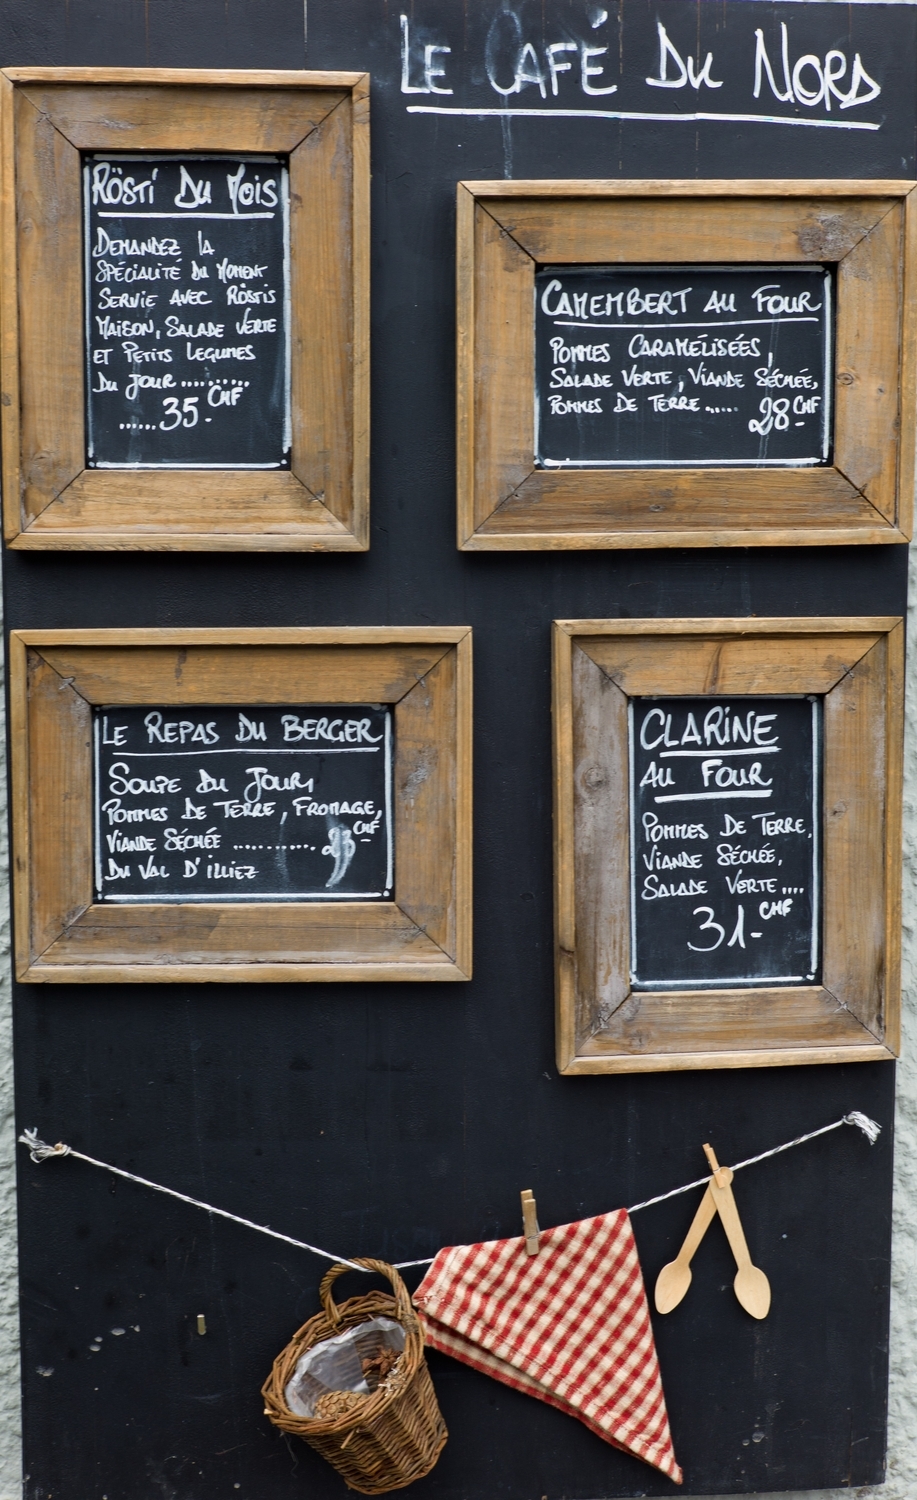 LE CAFÉ DU NORD
RÖSTI DU MOIS
DEMANDEZ LA
SPÉCIALITÉ DU MOMENT
SERVIE AVEC RÖSTIS
MAISON, SALADE VERTE
ET PETITS LEGUMES
DU JOUR..........
......35.- CHF
CAMEMBERT AU FOUR
POMMES CARAMÉLISÉES,
SALADE VERTE, VIANDE SÉCHÉE,
POMMES DE TERRE..... 28.- CHF
LE REPAS DU BERGER
SOUPE DU JOUR,
POMMES DE TERRE, FROMAGE,
VIANDE SÉCHÉE ............ 23.- CHF
DU VAL D'ILLIEZ
CLARINE
AU FOUR
POMMES DE TERRE,
VIANDE SÉCHÉE,
SALADE VERTE....
31.- CHF